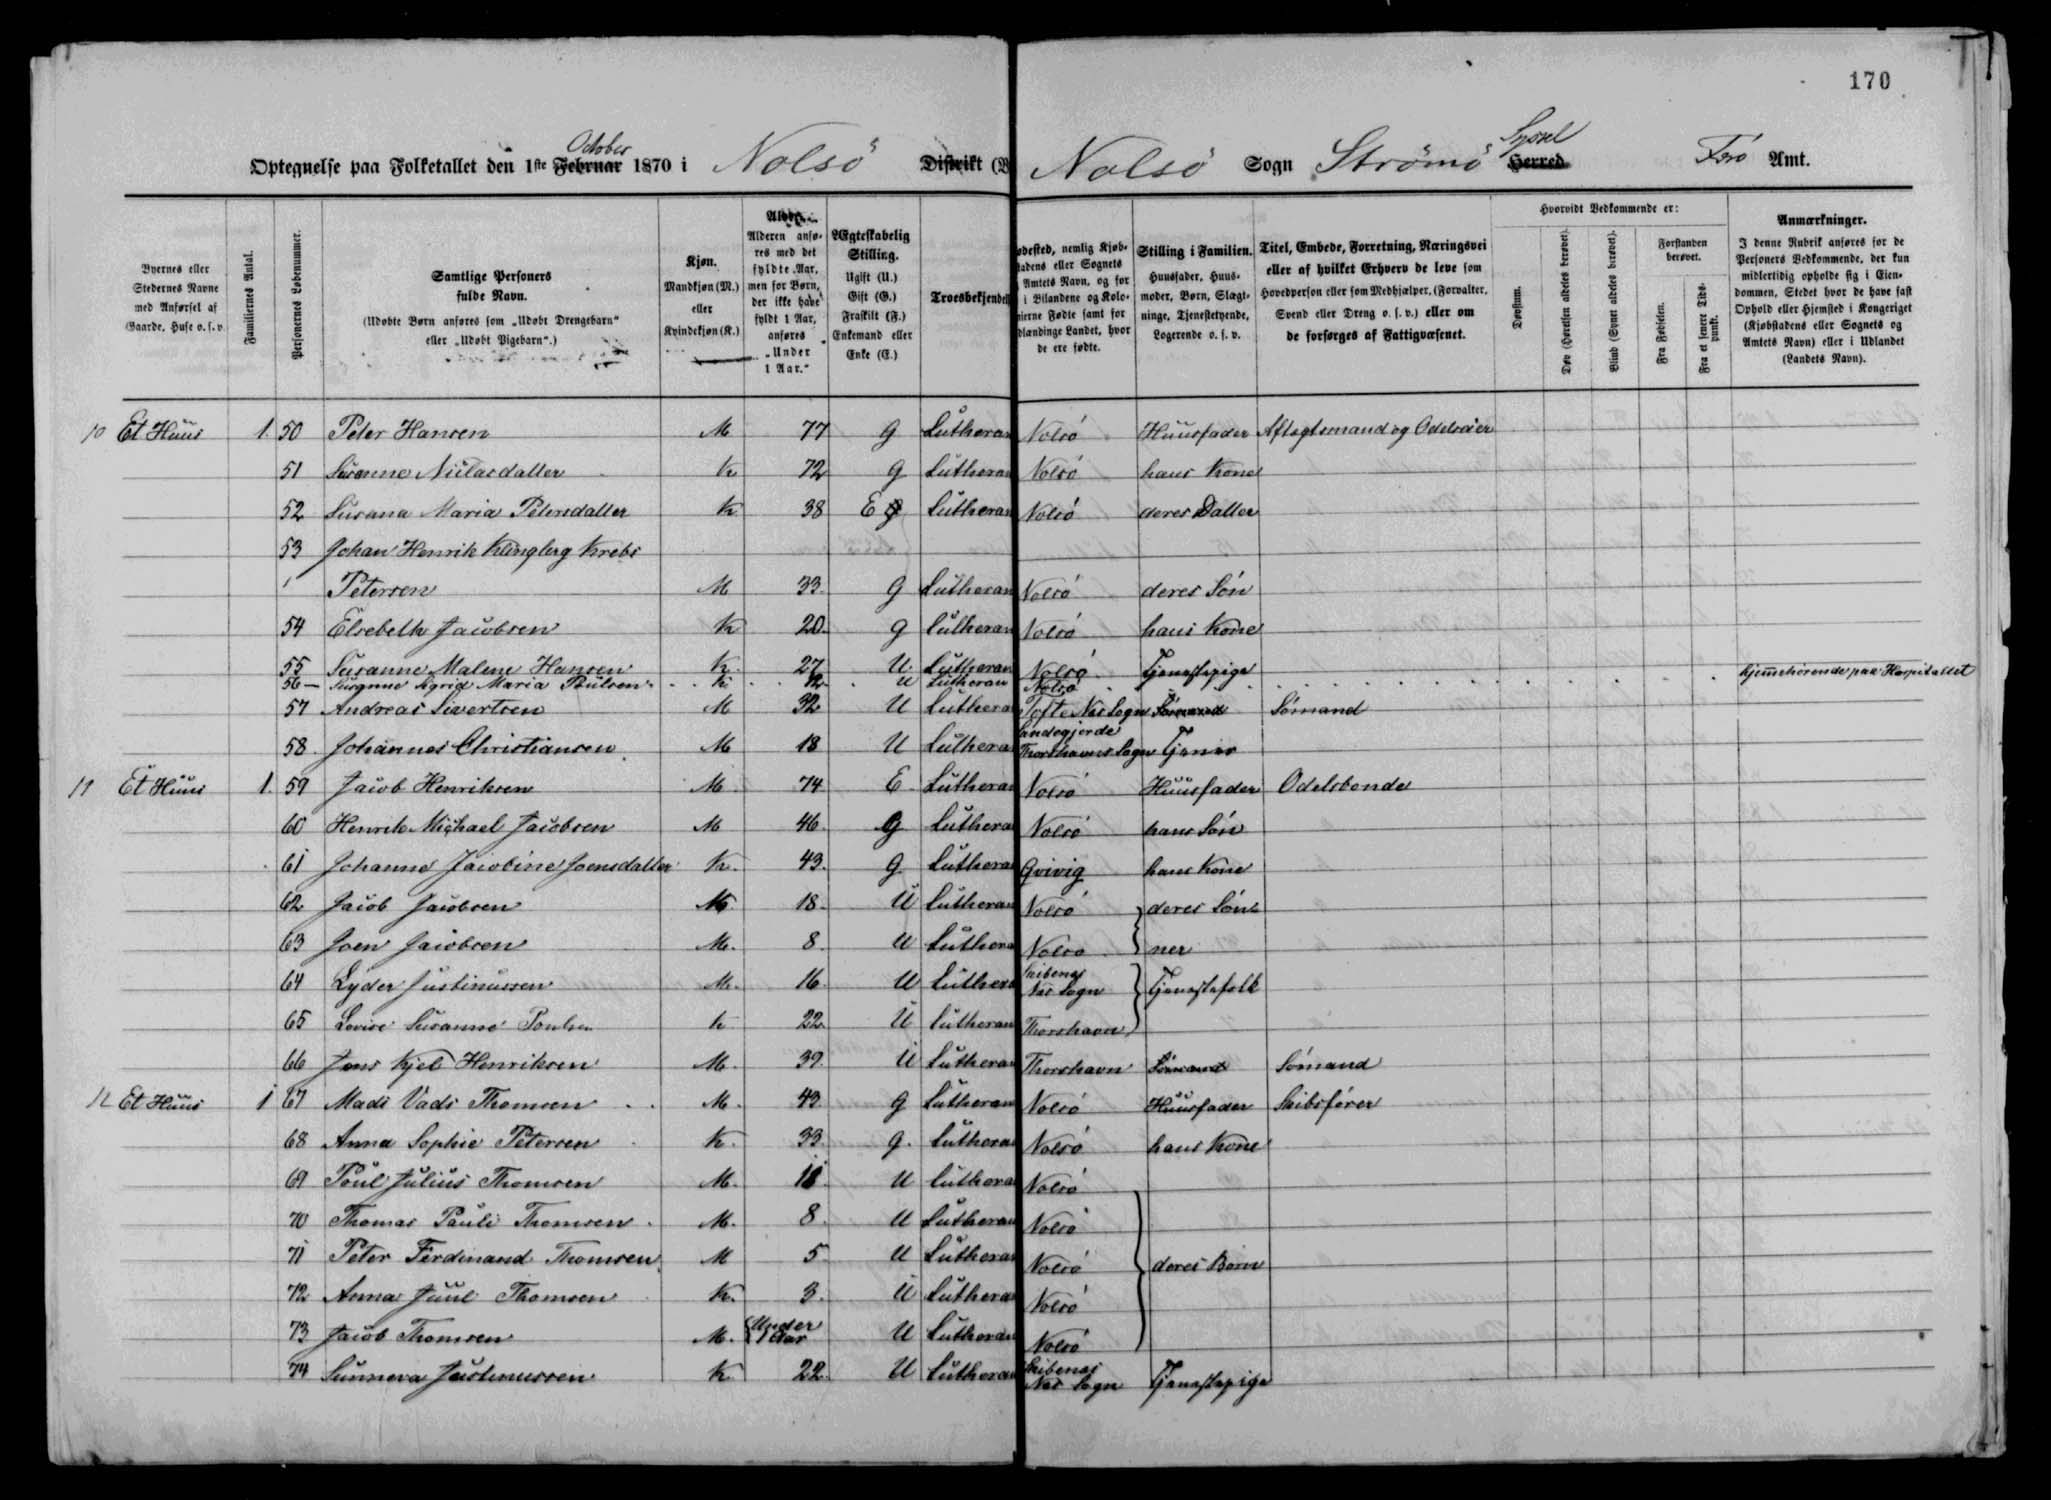 170
October
Syssel
Optegnelse paa Folketallet den 1ste Februar 1870 i Nolsö Distrikt (B Nolsö Sogn Strömö Herred Færö Amt.
Byernes eller Stedernes Navne med Anførsel af Gaarde, Huse o. s. v.
Familiernes Antal.
Personernes Løbenummer.
Samtlige Personers fulde Navn. (Udøbte Børn anføres som „Udøbt Drengebarn“ eller „Udøbt Pigebarn“.)
Kjøn. Mandkjøn (M.) eller Kvindekjøn (K.)
Alder. Alderen anføres med det fyldte Aar, men for Børn, der ikke have fyldt 1 Aar, anføres „Under 1 Aar.“
Ægteskabelig Stilling. Ugift (U.) Gift (G.) Fraskilt (F.) Enkemand eller Enke (E.)
Troesbekjendel
ødested, nemlig Kjøb- stadens eller Sognets Amtets Navn, og for i Bilandene og Kolo- nierne Fødte samt for dlændinge Landet, hvor de ere fødte.
Stilling i Familien. Huusfader, Huusmoder, Børn, Slægtninge, Tjenestetyende, Logerende o. s. v.
Titel, Embede, Forretning, Næringsvei eller af hvilket Erhverv de leve som Hovedperson eller som Medhjælper, (Forvalter, Svend eller Dreng o. s. v.) eller om de forsørges af Fattigvæsenet.
Hvorvidt Vedkommende er:
Døvstum.
Døv (Hørelsen aldeles berøvet).
Blind (Synet aldeles berøvet).
Forstanden berøvet.
Fra Fødselen.
Fra et senere Tidspunkt.
Anmærkninger. I denne Rubrik anføres for de Personers Vedkommende, der kun midlertidig opholde sig i Eiendommen, Stedet hvor de have fast Ophold eller Hjemsted i Kongeriget (Kjøbstadens eller Sognets og Amtets Navn) eller i Udlandet (Landets Navn).
10 Et Huus 1. 50 Peter Hansen M 77 G Lutheran Nolsö Huusfader Aftægtsmand og Odelseier
51 Susanne Niclasdatter K 72 G Lutheran Nolsö hans Kone
52 Susanna Maria Petersdatter K 38 E G Lutheran Nolsö deres Datter
53 Johan Henrik Klingberg Krebs
Petersen M 33 G Lutheran Nolsö deres Sön
54 Elsebeth Jacobsen K 20 G Lutheran Nolsö hans Kone
55 Susanne Malene Hansen K. 27 U Lutheran Nolsö Tjenestepige
56 Susanne Sigrid Maria Poulsen K. 12 U Lutheran Nolsö hjemmehörende paa Hospitallet
57 Andreas Sivertsen M 32 U Luthera Tofte Nes Sogn Sömand Sömand
58 Johannes Christiansen M 18 U Luthera Sandegjerde Thorshavns Sogn Tjener
11 Et Huus 1. 59 Jacob Henriksen M 74 E Lutheran Nolsö Huusfader Odelsbonde
60 Henrik Michael Jacobsen M 46 G Luthera Nolsö hans Sön
61 Johanne Jacobine Joensdatter K. 43. G Lutheran Qvivig hans Kone
62 Jacob Jacobsen M. 18. U Lutheran Nolsö deres Sön-
63 Joen Jacobsen M. 8. U Luthera Nolsö ner
64 Lyder Justinussen M. 16. U Luthera Skibenæs Nes Sogn Tjenestefolk
65 Lovise Susanne Poulsen K 22 U Lutheran Thorshavn
66 Jens Kjel Henriksen M. 39. U Lutheran Thorshavn Sömand Sömand
12 Et Huus 1 67 Mads Vads Thomsen M. 43 G Lutheran Nolsö Huusfader Skibsförer
68 Anna Sophie Petersen K. 33 G. Luthera Nolsö hans Kone
69 Poul Julius Thomsen M. 11 U Luthera Nolsö
70 Thomas Pauli Thomsen M. 8 U Lutheran Nolsö
71 Peter Ferdinand Thomsen M 5 U Lutheran Nolsö deres Börn
72 Anna Juul Thomsen K. 3. U Luthera Nolsö
73 Jacob Thomsen M. Under 1 Aar U Lutheran Nolsö
74 Sunneva Justinussen K 22 U Lutheran Skibenæs Nes Sogn Tjenestepige